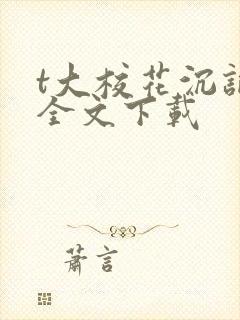 t大校花沉
全文下載
蕭言